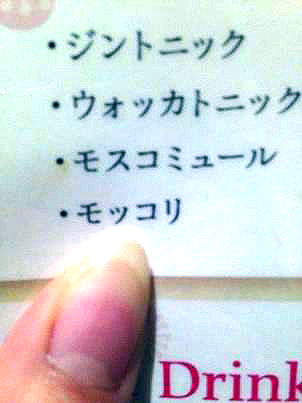 ・ジントニック
・ウォッカトニック
・モスコミュール
・モッコリ
Drink